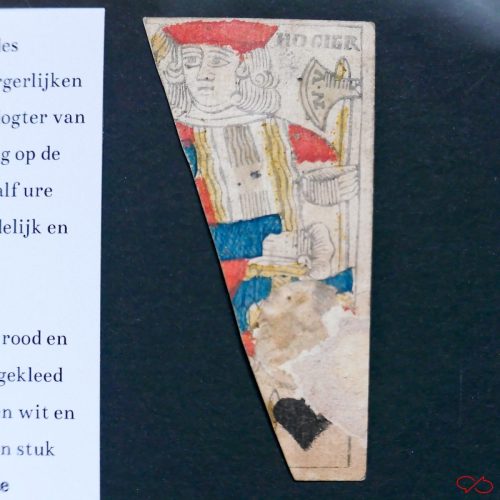 des
rgerlijken
ogter van
g op de
alf ure
delijk en
rood en
gekleed
en wit en
n stuk
e
HOGIER
N.V